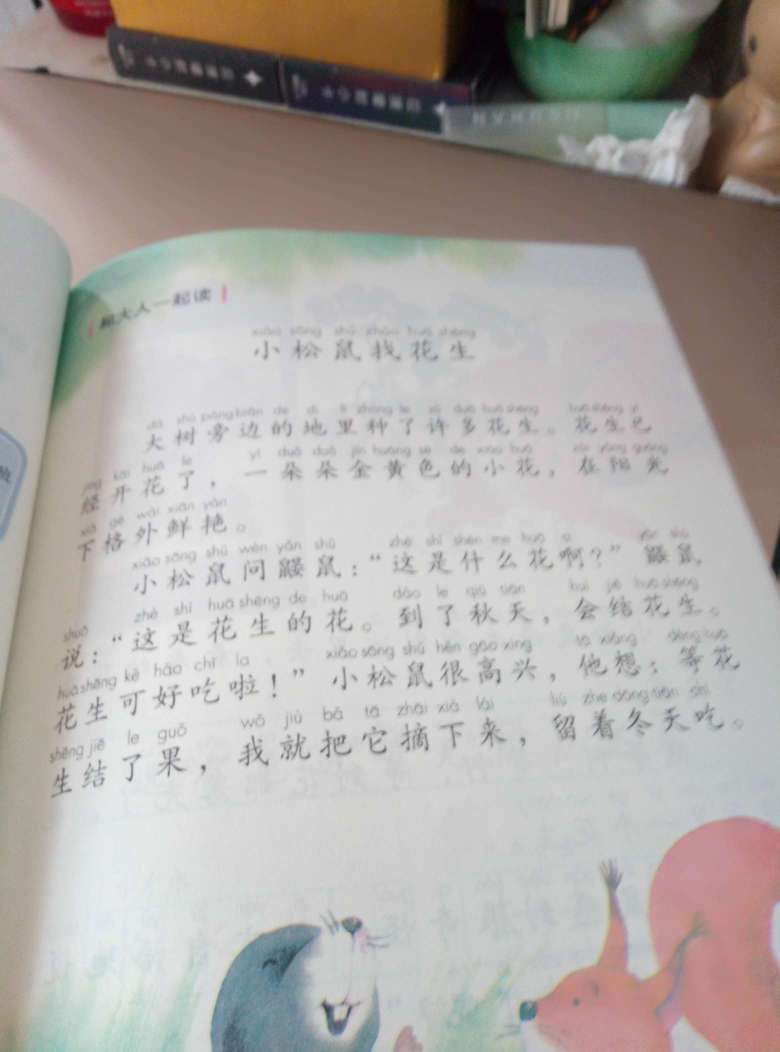 和大人一起读
xiǎo sōng shǔ zhǎo huā shēng
小松鼠找花生
dà shù páng biān de dì lǐ zhòng le xǔ duō huā shēng huā shēng yǐ
大树旁边的地里种了许多花生。花生已
jīng kāi huā le yì duǒ duǒ jīn huáng sè de xiǎo huā zài yáng guāng
经开花了，一朵朵金黄色的小花，在阳光
xià gé wài xiān yàn
下格外鲜艳。
xiǎo sōng shǔ wèn yǎn shǔ zhè shì shén me huā a yǎn shǔ
小松鼠问鼹鼠：“这是什么花啊？”鼹鼠
shuō zhè shì huā shēng de huā dào le qiū tiān huì jiē huā shēng
说：“这是花生的花。到了秋天，会结花生。
huā shēng kě hǎo chī la xiǎo sōng shǔ hěn gāo xìng tā xiǎng děng huā
花生可好吃啦！”小松鼠很高兴，他想：等花
shēng jiē le guǒ wǒ jiù bǎ tā zhāi xià lái liú zhe dōng tiān chī
生结了果，我就把它摘下来，留着冬天吃。